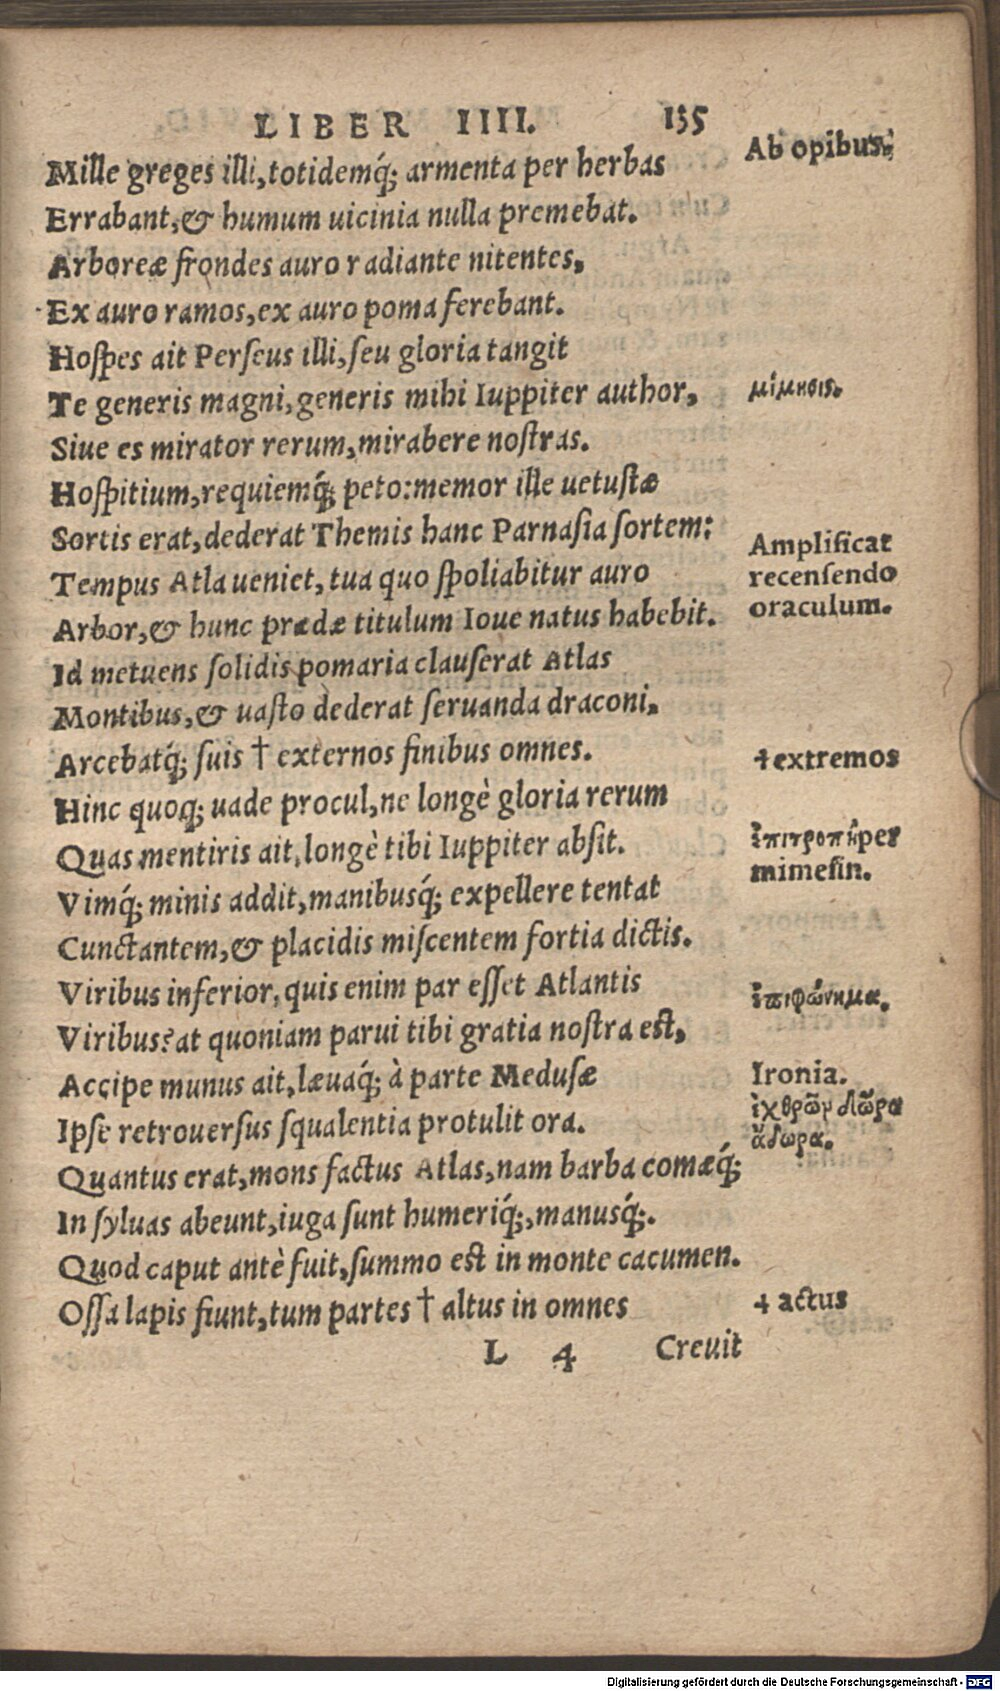 LIBER IIII. 135
Mille greges illi, totidemq́; armenta per herbas
Errabant, & humum uicinia nulla premebat.
Arboreæ frondes auro radiante nitentes,
Ex auro ramos, ex auro poma ferebant.
Hoſpes ait Perſeus illi, ſeu gloria tangit
Te generis magni, generis mihi Iuppiter author,
Siue es mirator rerum, mirabere noſtras.
Hoſpitium, requiemq́; peto: memor ille uetuſtæ
Sortis erat, dederat Themis hanc Parnaſia ſortem:
Tempus Atla ueniet, tua quo ſpoliabitur auro
Arbor, & hunc prædæ titulum Ioue natus habebit.
Id metuens ſolidis pomaria clauſerat Atlas
Montibus, & uaſto dederat ſeruanda draconi,
Arcebatq́; ſuis † externos finibus omnes.
Hinc quoq; uade procul, ne longè gloria rerum
Quas mentiris ait, longè tibi Iuppiter absit.
Vimq́; minis addit, manibusq́; expellere tentat
Cunctantem, & placidis miſcentem fortia dictis.
Viribus inferior, quis enim par eſſet Atlantis
Viribus? at quoniam parui tibi gratia noſtra eſt,
Accipe munus ait, læuaq́; à parte Meduſæ
Ipſe retrouerſus ſqualentia protulit ora.
Quantus erat, mons factus Atlas, nam barba comæq́;
In ſyluas abeunt, iuga ſunt humeriq́;, manusq́;.
Quod caput antè fuit, ſummo eſt in monte cacumen.
Oſſa lapis fiunt, tum partes † altus in omnes
L 4 Creuit
Ab opibus.
μίμησις.
Amplificat
recenſendo
oraculum.
† extremos
ἐπιτροπὴ per
mimeſin.
ἐπιφώνημα.
Ironia.
ἐχθρῶν δῶρα
ἄδωρα.
† actus
Digitalisierung gefördert durch die Deutsche Forschungsgemeinschaft - DFG